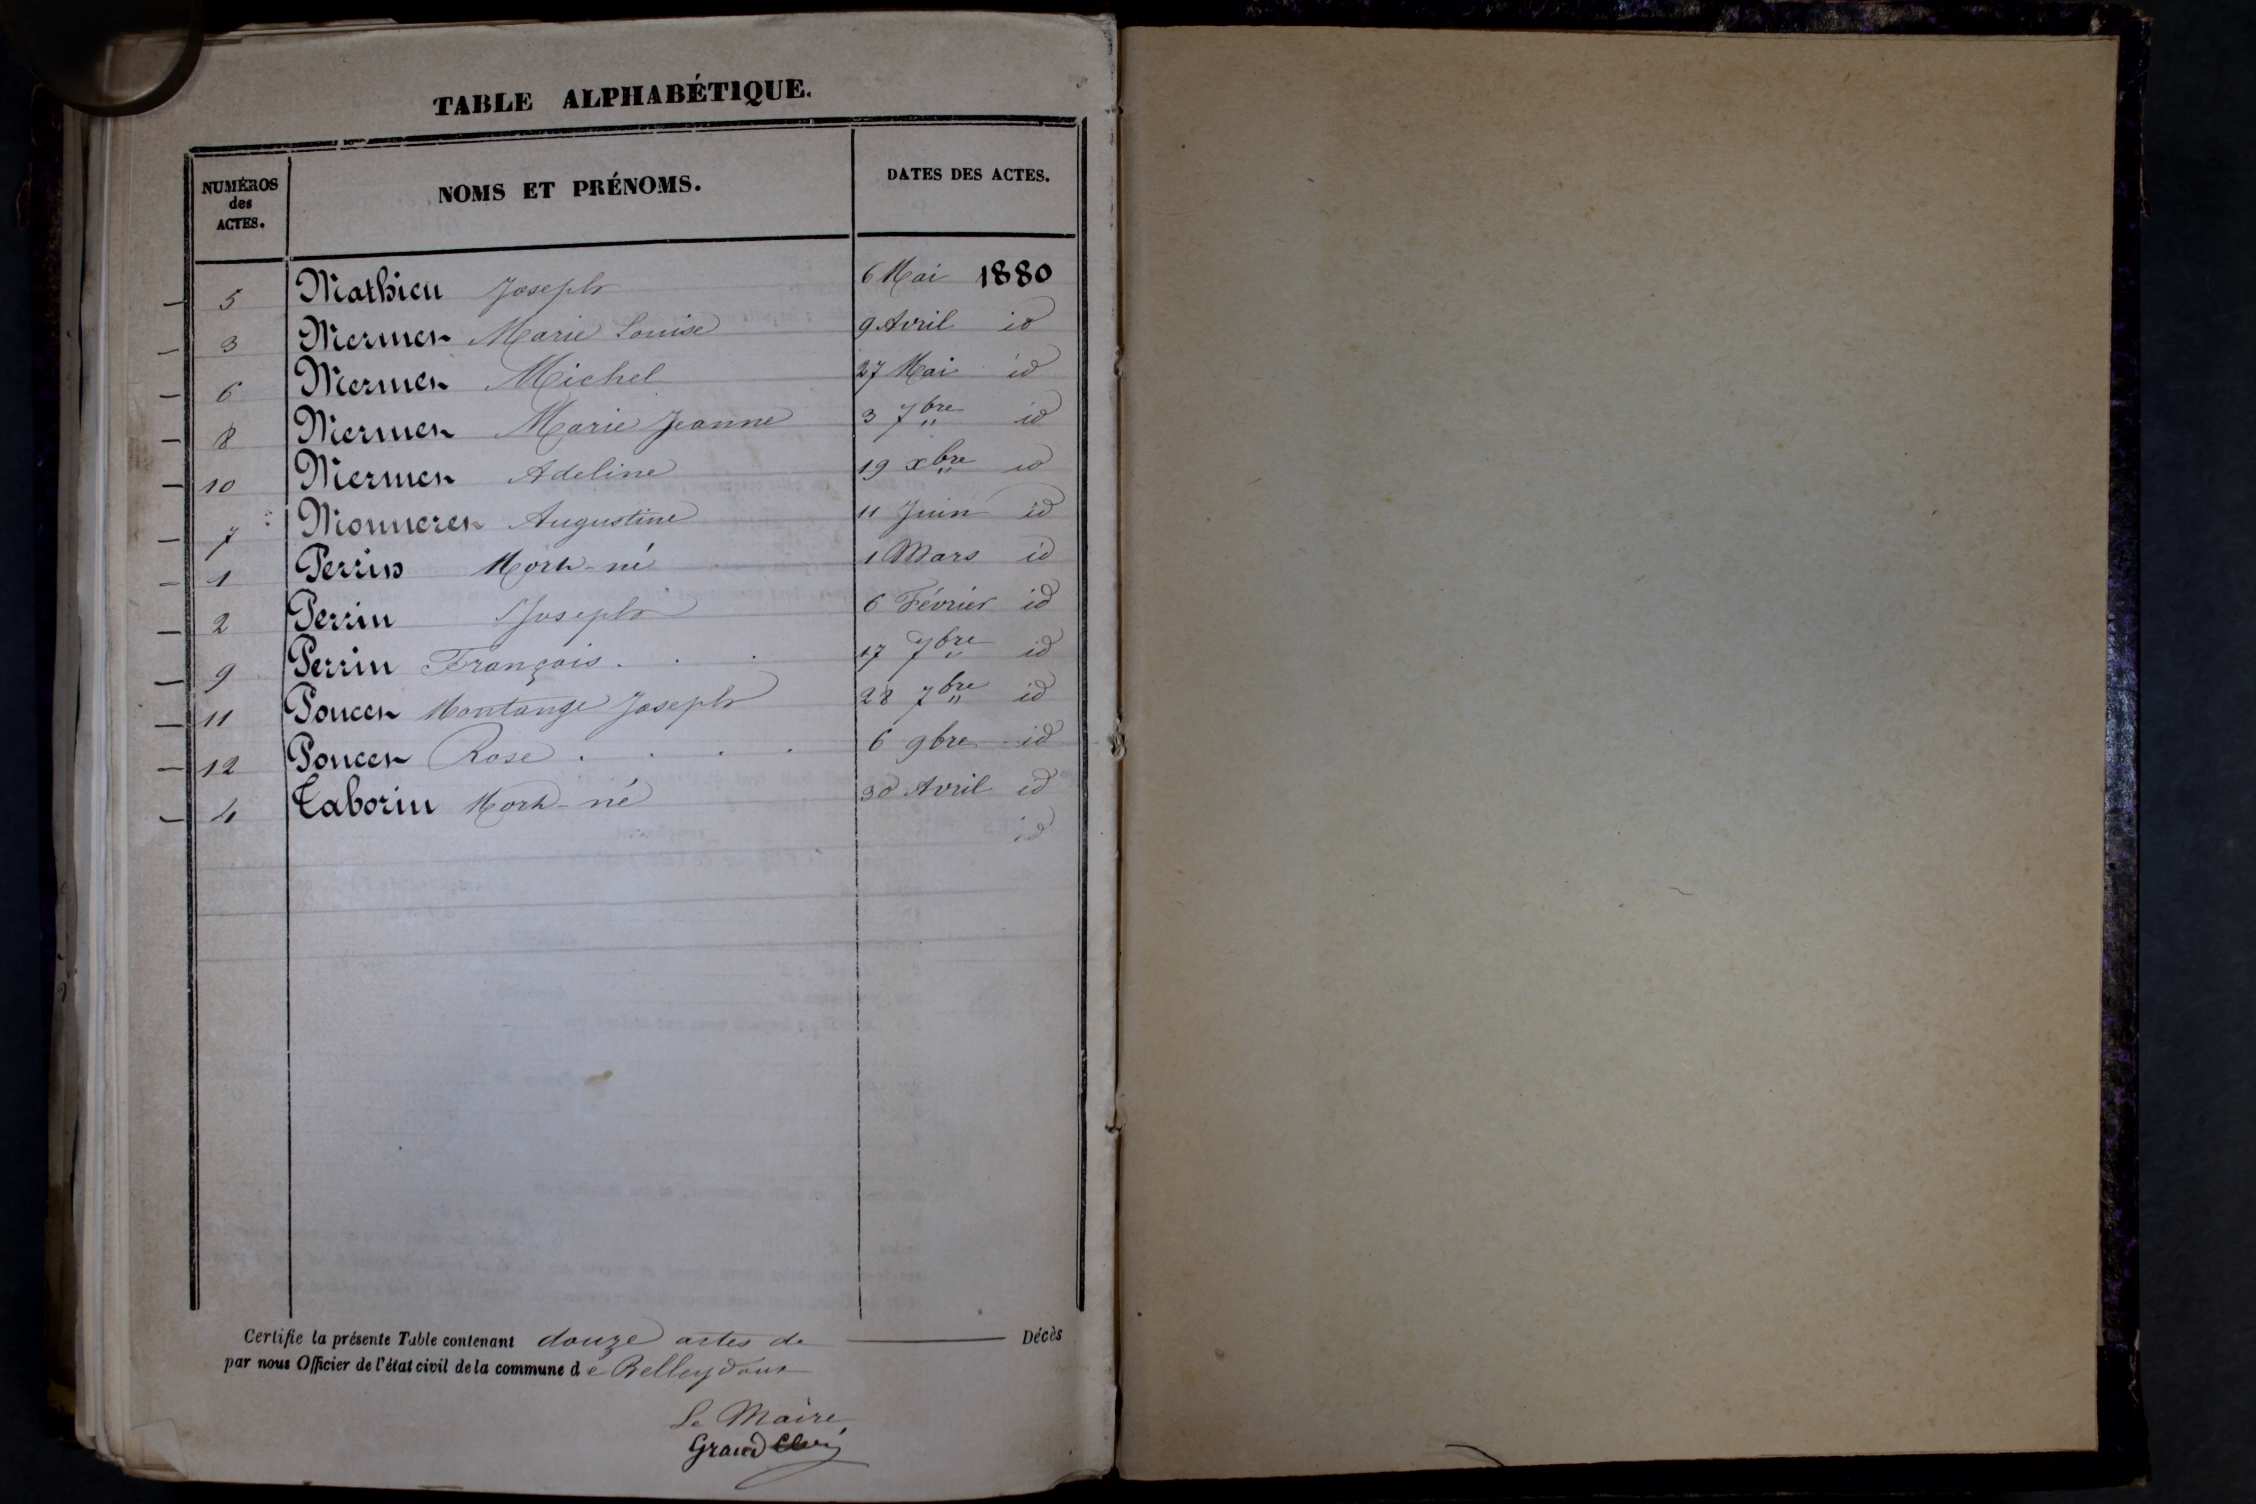 TABLE ALPHABÉTIQUE.
NUMÉROS des ACTES. NOMS ET PRÉNOMS. DATES DES ACTES.
5 Mathieu Joseph 6 Mai 1880
3 Mermet Marie Louise 9 Avril id
6 Mermet Michel 27 Mai id
8 Mermet Marie Jeanne 3 7bre id
10 Mermet Adeline 19 xbre id
7 Monneret Augustine 11 Juin id
1 Perrin Mort-né 1 Mars id
2 Perrin Joseph 6 Février id
9 Perrin François . . . 17 7bre id
11 Poncet Montange Joseph 28 7bre id
12 Poncet Rose . . . . 6 9bre id
4 Taborin Mort-né 30 Avril id
id
Certifie la présente Table contenant douze actes de Décès
par nous Officier de l'état civil de la commune de Belleydoux
Le Maire,
Grand